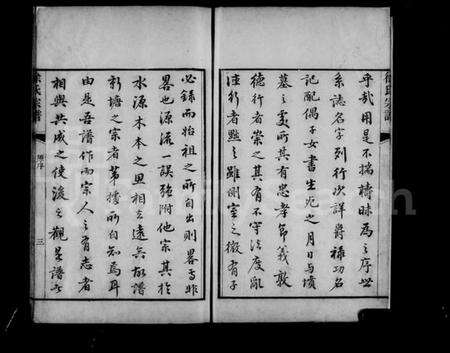 乎哉用是不揣檮昧為之序世
系誌名字列行次詳爵祿功名
記配偶子女書生充之月日与墳
墓之處所其有忠孝節義敦
德行者崇之其有不守法度亂
法行者黜之雖側室之微有子
必録而始祖之所自出則畧焉非
畧也源流一誤強附他宗其於
水源木本之思相去遠矣故譜
新塘之宗者第據所自知焉耳
由是吾譜作而宗人之有志者
相與共成之使後之觀是譜者
徐氏宗譜
徐氏宗譜
序
三